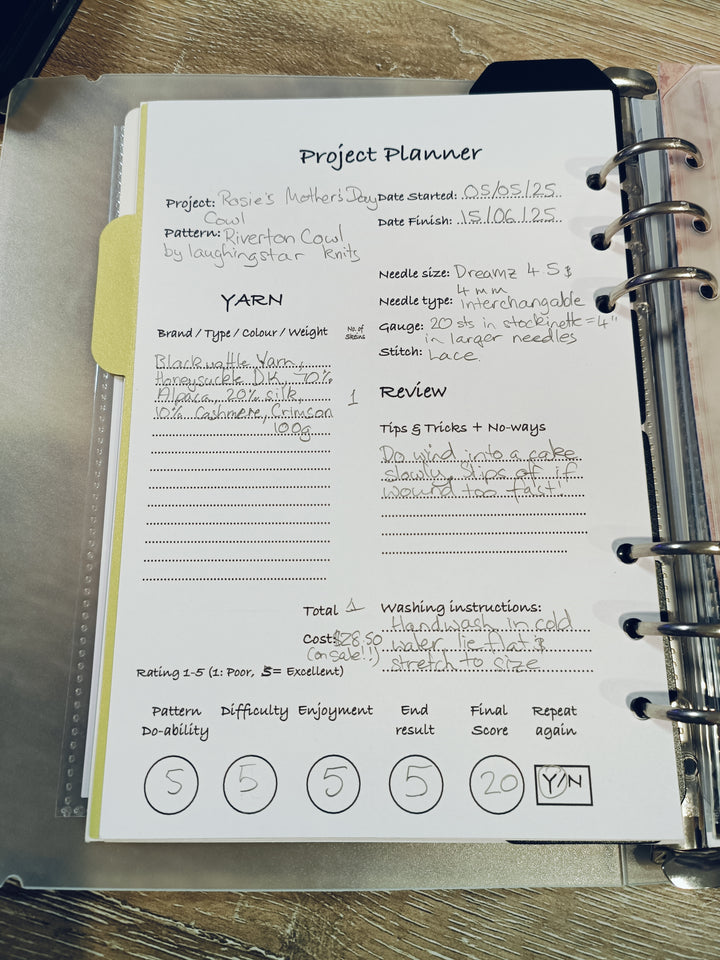 Project Planner
Project: Rosie's Mother's Day
Cowl
Pattern: Riverton Cowl
by laughingstar knits
Date Started: 05/05/25
Date Finish: 15/06/25
YARN
Brand / Type / Colour / Weight
No. of
Skeins
Blackwattle Yarn,
Honeysuckle DK, 70%
Alpaca, 20% silk,
10% Cashmere, Crimson
100g
1
Needle size: Dreamz 4.5 &
4mm
Needle type: Interchangable
Gauge: 20 sts in stockinette = 4"
in larger needles
Stitch: Lace.
Review
Tips & Tricks + No-ways
Do wind into a cake
slowly. Slips off if
wound too fast!
Total 1
Cost: $28.50
(on sale!!)
Washing instructions:
Handwash in cold
water, lie flat &
stretch to size
Rating 1-5 (1: Poor, 5= Excellent)
Pattern
Do-ability
Difficulty
Enjoyment
End
result
Final
Score
Repeat
again
5
5
5
5
20
Y/N